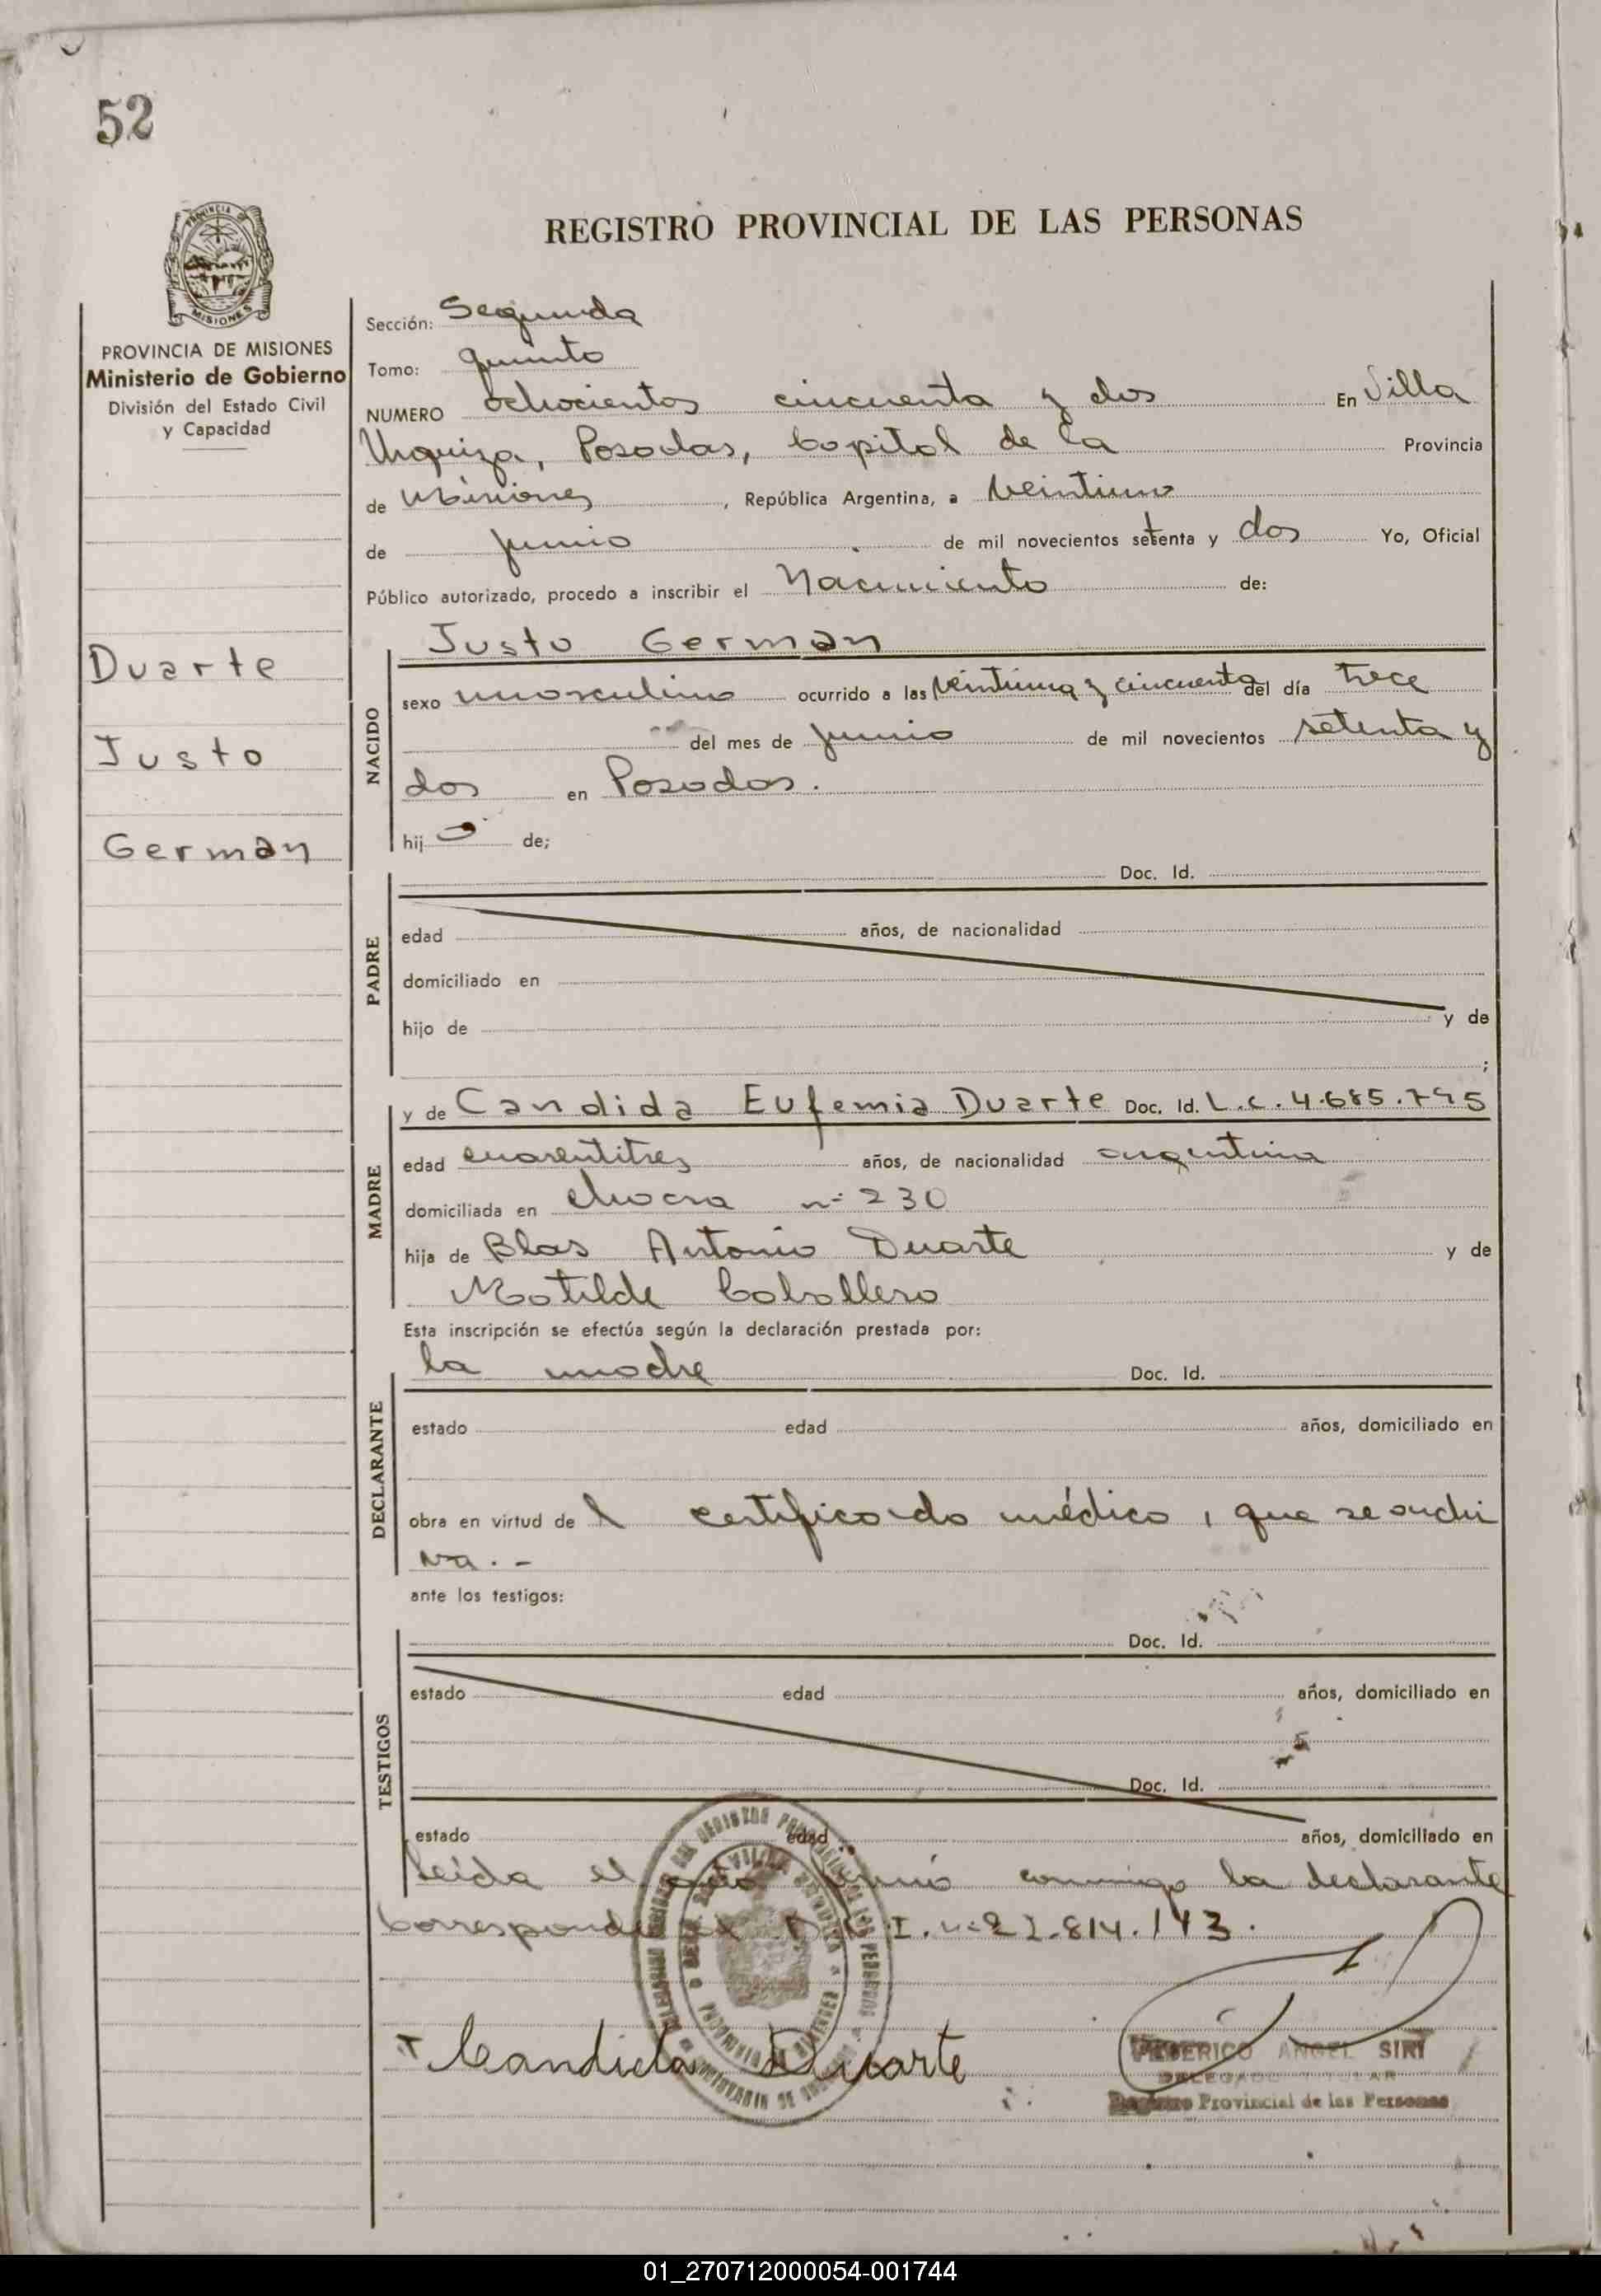 52
REGISTRO PROVINCIAL DE LAS PERSONAS
PROVINCIA DE
MISIONES
PROVINCIA DE MISIONES
Ministerio de Gobierno
División del Estado Civil
y Capacidad
Duarte
Justo
German
Sección: Segunda
Tomo: quinto
NUMERO ochocientos cincuenta y dos En Villa
Urquiza, Posadas, Capital de la Provincia
de Misiones, República Argentina, a veintiuno
de junio de mil novecientos setenta y dos Yo, Oficial
Público autorizado, procedo a inscribir el Nacimiento de:
NACIDO
Justo German
sexo masculino ocurrido a las veintiuna y cincuenta del día trece
del mes de junio de mil novecientos setenta y
dos en Posadas.
hij o de;
PADRE
Doc. Id.
edad años, de nacionalidad
domiciliado en
hijo de y de
;
MADRE
y de Candida Eufemia Duarte Doc. Id. L.c. 4.685.795
edad cuarentitres años, de nacionalidad argentina
domiciliada en chacra nº 230
hija de Blas Antonio Duarte y de
Matilde Caballero
Esta inscripción se efectúa según la declaración prestada por:
DECLARANTE
la madre Doc. Id.
estado edad años, domiciliado en
obra en virtud de l certificado médico, que se archi
va. -
ante los testigos:
TESTIGOS
Doc. Id.
estado edad años, domiciliado en
Doc. Id.
estado edad años, domiciliado en
Leída el acta firmó conmigo la declarante
Corresponde D.N.I. nº 22.814.143.
Candida Duarte
FEDERICO ANGEL SIRI
DELEGADO TITULAR
Registro Provincial de las Personas
01_270712000054-001744